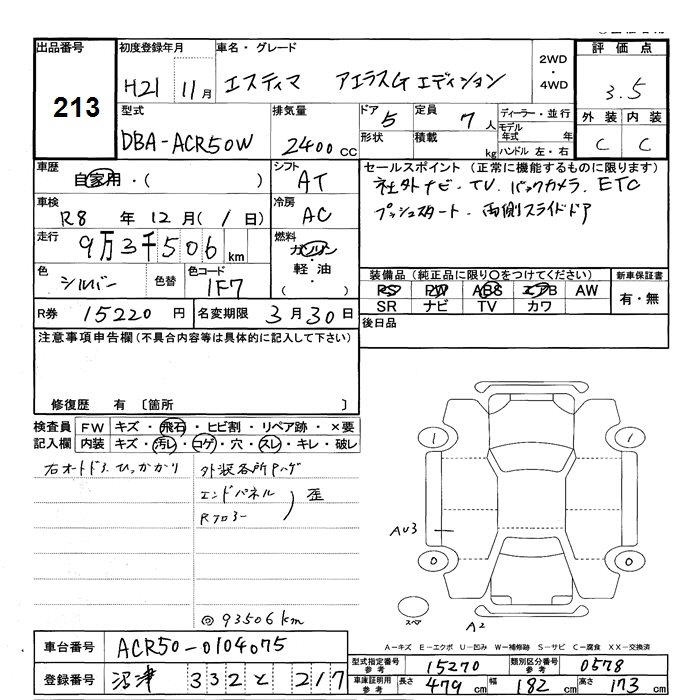 出品番号
213
初度登録年月
H21 11月
車名・グレード
エスティマ アエラスG エディション
2WD
・
4WD
評価点
3.5
型式
DBA-ACR50W
排気量
2400 CC
ドア 5
形状
定員 7 人
積載 kg
ディーラー・並行
モデル年式 年
ハンドル 左・右
外装 内装
C C
車歴
自家用・( )
シフト
AT
セールスポイント (正常に機能するものに限ります)
社外ナビ・TV. バックカメラ. ETC
プッシュスタート・両側スライドドア
車検
R8 年 12月( 1 日)
冷房
AC
走行
9万3千506 km
燃料
ガソリン
・
軽油
( )
色
シルバー
色替
色コード
1F7
装備品 (純正品に限り○をつけてください)
PS PW ABS エアB AW
SR ナビ TV カワ
新車保証書
有・無
R券 15220 円
名変期限 3月30日
後日品
注意事項申告欄 (不具合内容等は具体的に記入して下さい)
修復歴 有 〔箇所 〕
検査員
記入欄
FW キズ・飛石・ヒビ割・リペア跡・×要
内装 キズ・汚レ・コゲ・穴・スレ・キレ・破レ
右オートドア.ひっかかり
外装各所Pハゲ
エンドパネル
Rフロアー
歪
◎93506km
1 1
AU3
0 0
スペア
A2
A-キズ E-エクボ U-凹み W-補修跡 S-サビ C-腐食 XX-交換済
車台番号 ACR50-0104075
登録番号 沼津 332 と 217
型式指定番号
参考
15270
類別区分番号
参考
0578
車庫証明用
参考
長さ 479 cm 幅 182 cm 高さ 173 cm